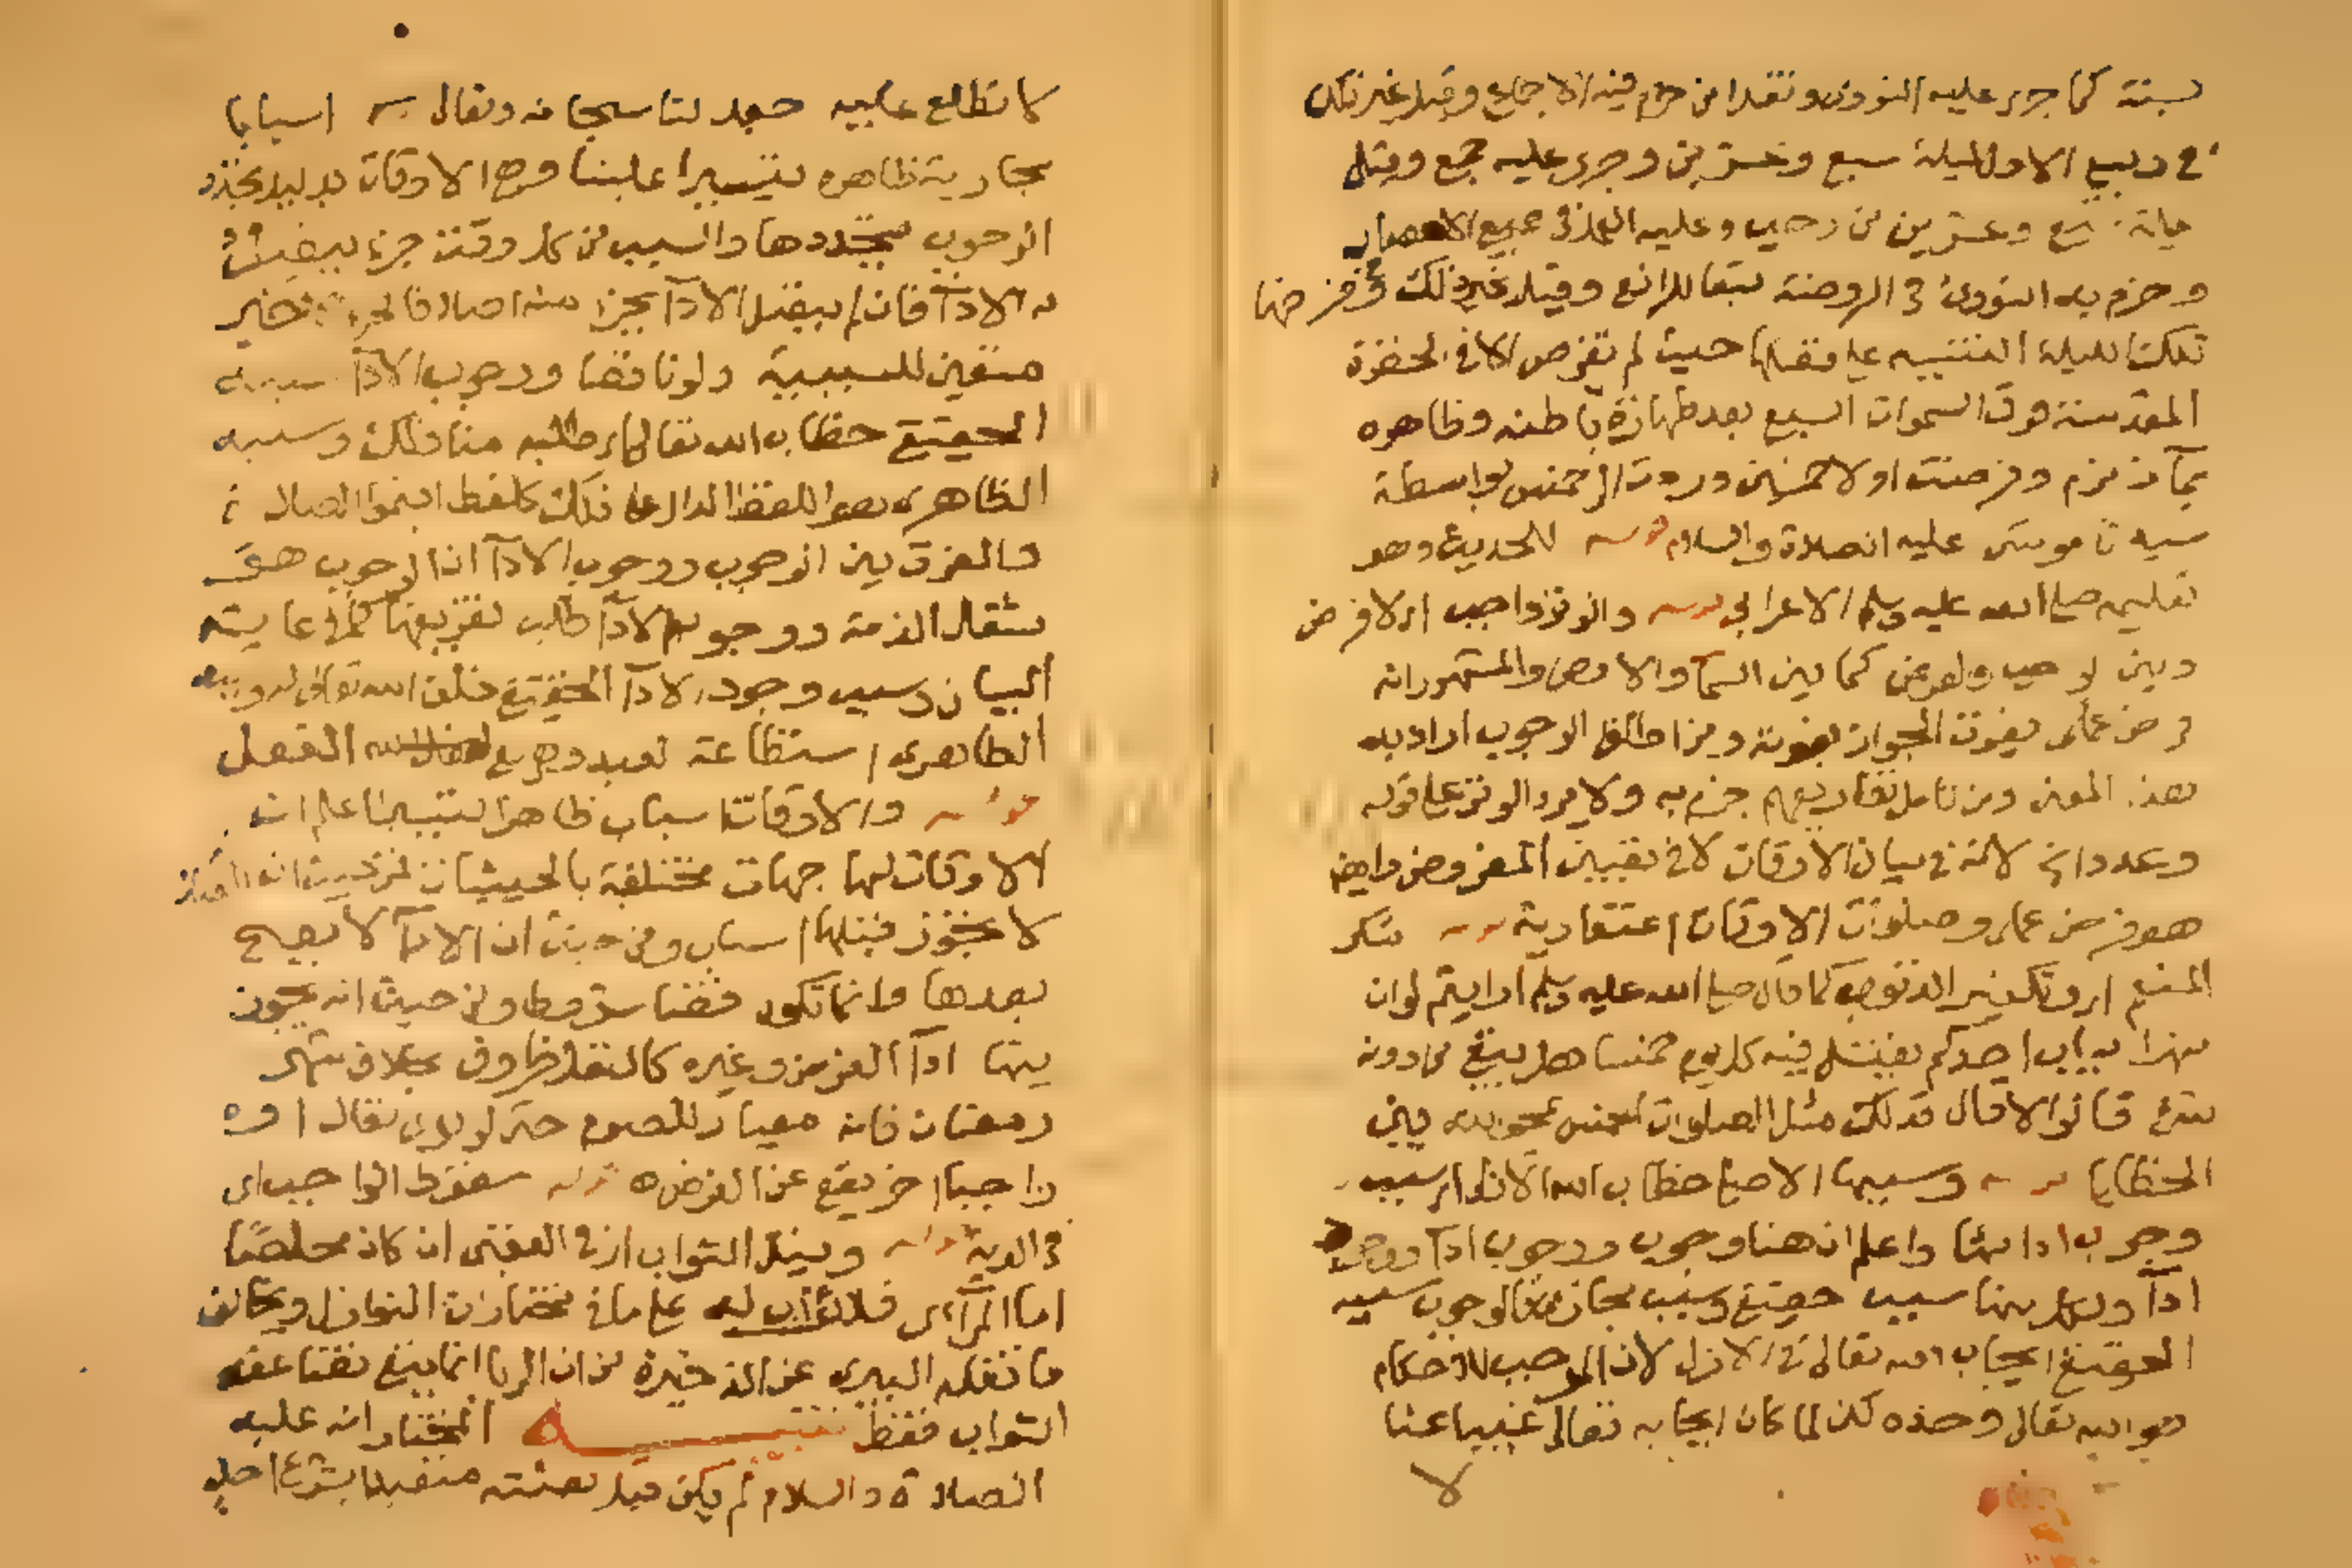 بسنة كما جرى عليه النووي ونقل ابن حزم فيه الاجماع وقيل غير ذلك
في ربيع الاول ليلة سبع وعشرين وجرى عليه جمع وقيل
ليلة سبع وعشرين من رجب وعليه العمل في جميع الامصار
وجزم به النووي في الروضة تبعا للرافعي وقيل غير ذلك وفرضها
تلك الليلة التنبيه على فضلها حيث لم تفرض الا في الحضرة
المقدسة فوق السموات السبع بعد طهارة باطنه وظاهره
بماء زمزم وفرضت اولا خمسين وردت الى خمس بواسطة
سيدنا موسى عليه الصلاة والسلام قوله للحديث وهو
تعليمه صلى الله عليه وسلم الاعرابي قوله والوتر واجب اي لا فرض
وبين الواجب والفرض كما بين السماء والارض والمشهور انه
فرض عملي يفوت الجواز بفوته ومن اطلق الوجوب اراد به
هذا المعنى ومن تامل تفاريعهم جزم به ولا يرد الوتر على قوله
وعددها لانه في بيان الاوقات لا في تعيين المفروض وايضا
هو فرض عملي وصلوات الاوقات اعتقادية قوله شكر
المنعم اي وتكفير الذنوب كما قال صلى الله عليه وسلم ارايتم لو ان
نهرا بباب احدكم يغتسل فيه كل يوم خمسا هل يبقى من درنه
شيء قالوا لا قال فذلك مثل الصلوات الخمس يمحو الله بهن
الخطايا قوله وسببها الاصلي خطاب الله الازلي اي سبب
وجوب ادائها واعلم ان هنا وجوب ووجوب اداء ووجود
اداء ولكل منها سبب حقيقي وسبب مجازي فالوجوب سببه
الحقيقي ايجاب الله تعالى في الازل لان الموجب للاحكام
هو الله تعالى وحده لكن لما كان ايجابه تعالى غيبا عنا
لا
لا نطلع عليه جعل لنا سبحانه وتعالى اسبابا
مجازية ظاهره تيسيرا علينا وهي الاوقات بدليل تجدد
الوجوب بتجددها والسبب من كل وقت جزء يتصل
به الاداء فان لم يتصل الاداء بجزء منه اصلا فالجزء الاخير
متعين للسببية ولو ناقصا ووجوب الاداء سببه
الحقيقي خطاب الله تعالى اي طلبه منا ذلك وسببه
الظاهري هو اللفظ الدال على ذلك كلفظ اقيموا الصلاة
والفرق بين الوجوب ووجوب الاداء ان الوجوب هو
شغل الذمة ووجوب الاداء طلب تفريغها كما في غاية
البيان وسبب وجود الاداء الحقيقي خلق الله تعالى له وسببه
الظاهري استطاعة العبد وهي مع الفعل
قوله والاوقات اسباب ظاهرا تيسيرا اعلم ان
الاوقات لها جهات مختلفة بالحيثيات فمن حيث ان الصلاة
لا تجوز قبلها اسباب ومن حيث ان الاداء لا يصح
بعدها وانما تكون قضا شروط ومن حيث انه يجوز
بها اداء الفرض وغيره كالنفل ظروف بخلاف شهر
رمضان فانه معيار للصوم حتى لو نوى نفلا او
واجبا اخر يقع عن الفرض قوله سقوط الواجب اي
في الدنيا قوله ونيل الثواب اي في العقبى ان كان مخلصا
اما المرائي فلا ثواب له على ما في مختارات النوازل ويخالف
ما نقله البيري عن الذخيرة من ان الريا انما ينفي تضاعف
الثواب فقط تنبيه المختار انه عليه
الصلاة والسلام لم يكن قبل بعثته متعبدا بشرع احد